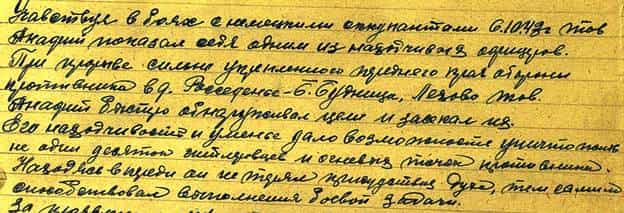 Участвуя в боях с немецкими оккупантами 6.10.43г тов
Анадрит показал себя одним из находчивых офицеров.
При прорыве сильно укрепленного переднего края обороны
противника в д. Б. Будница, Лехово тов.
Анадрит быстро обнаруживал цели и засекал их.
Его находчивость и уменье дало возможность уничтожить
не один десяток гитлеровцев и огневых точек противника.
Находясь впереди он не терял присутствия духа, тем самым
способствовал выполнения боевой задачи.
За